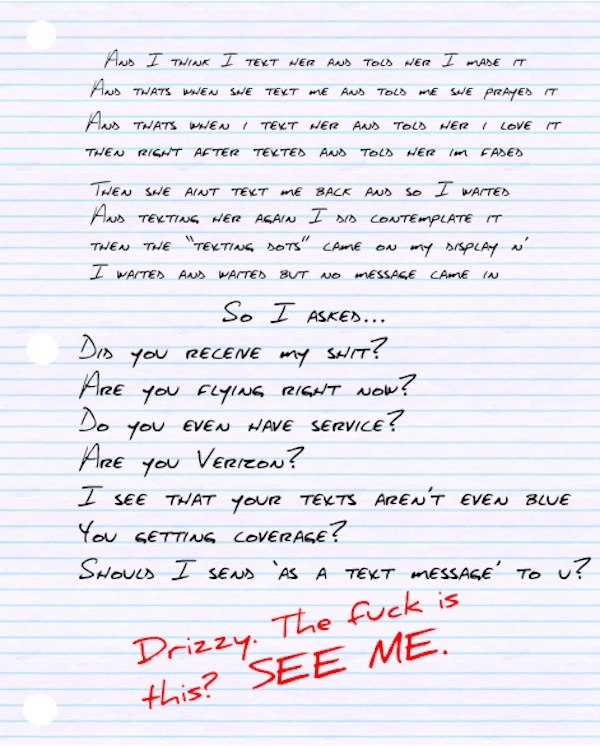 And I think I text her and told her I made it
And thats when she text me and told me she prayed it
And thats when i text her and told her i love it
then right after texted and told her im faded
Then she aint text me back and so I waited
And texting her again I did contemplate it
then the "texting dots" came on my display n'
I waited and waited but no message came in
So I asked...
Did you receive my shit?
Are you flying right now?
Do you even have service?
Are you Verizon?
I see that your texts aren't even blue
You getting coverage?
Should I send 'as a text message' to u?
Drizzy. The fuck is
this? SEE ME.